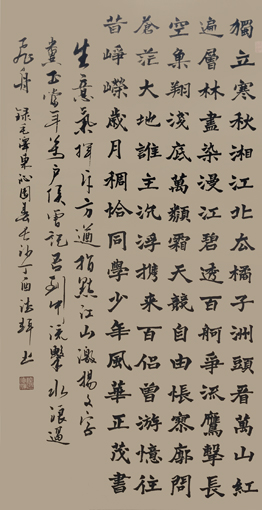 獨立寒秋湘江北去橘子洲頭看萬山紅
遍層林盡染漫江碧透百舸爭流鷹擊長
空魚翔淺底萬類霜天競自由悵寥廓問
蒼茫大地誰主沉浮攜來百侶曾游憶往
昔崢嶸歲月稠恰同學少年風華正茂書
生意氣揮斥方遒指點江山激揚文字
糞土當年萬户侯曾記否到中流擊水浪遏
飛舟 錄毛澤東沁園春長沙丁酉法輝